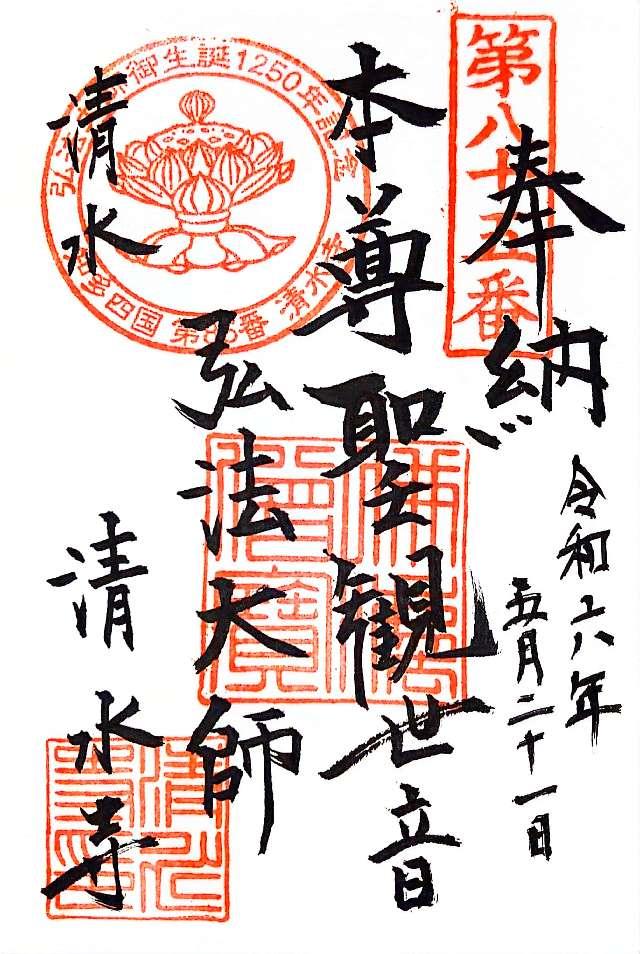 奉納
令和六年
五月二十一日
第八十五番
本尊聖観世音
弘法大師
清水
清水寺
御生誕1250年記念
多四国 第85番 清水寺